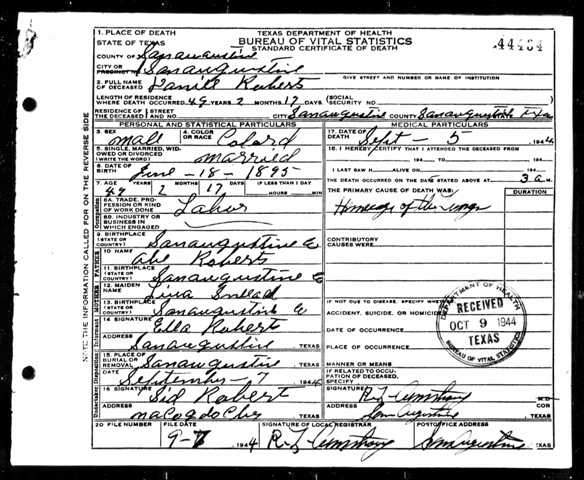 TEXAS DEPARTMENT OF HEALTH
BUREAU OF VITAL STATISTICS
STANDARD CERTIFICATE OF DEATH
44464
1. PLACE OF DEATH
STATE OF TEXAS
COUNTY OF Sanaugustine
CITY OR PRECINCT NO. Sanaugustine
GIVE STREET AND NUMBER OR NAME OF INSTITUTION
2. FULL NAME OF DECEASED Roberts
LENGTH OF RESIDENCE WHERE DEATH OCCURRED 49 YEARS 2 MONTHS 17 DAYS (SOCIAL SECURITY NO.
RESIDENCE OF THE DECEASED STREET AND NO. CITY Sanaugustine COUNTY Sanaugustine Texas
PERSONAL AND STATISTICAL PARTICULARS
MEDICAL PARTICULARS
3. SEX male 4. COLOR OR RACE Colard
5. SINGLE, MARRIED, WIDOWED OR DIVORCED (WRITE THE WORD) married
6. DATE OF BIRTH June - 18 - 1895
7. AGE 49 YEARS 2 MONTHS 17 DAYS IF LESS THAN 1 DAY HOURS MIN
8A. TRADE, PROFESSION OR KIND OF WORK DONE Labor
8B. INDUSTRY OR BUSINESS IN WHICH ENGAGED
9. BIRTHPLACE (STATE OR COUNTRY) Sanaugustine
10. NAME Abe Roberts
11. BIRTHPLACE (STATE OR COUNTRY) Sanaugustine
12. MAIDEN NAME
13. BIRTHPLACE (STATE OR COUNTRY) Sanaugustine
14. SIGNATURE Ella Roberts
ADDRESS Sanaugustine TEXAS
15. PLACE OF BURIAL OR REMOVAL Sanaugustine TEXAS
DATE September - 7 1944
16. SIGNATURE Sid Robert
ADDRESS Nacogdoches TEXAS
17. DATE OF DEATH Sept - 5 1944
18. I HEREBY CERTIFY THAT I ATTENDED THE DECEASED FROM
194 TO 194
I LAST SAW H ALIVE ON 194
THE DEATH OCCURRED ON THE DATE STATED ABOVE AT 3 a M.
THE PRIMARY CAUSE OF DEATH WAS: DURATION
of the lungs
CONTRIBUTORY CAUSES WERE:
IF NOT DUE TO DISEASE, SPECIFY WHETHER
ACCIDENT, SUICIDE, OR HOMICIDE
DATE OF OCCURRENCE
PLACE OF OCCURRENCE
MANNER OR MEANS
IF RELATED TO OCCUPATION OF DECEASED, SPECIFY
SIGNATURE Armstrong M.D. COR
ADDRESS San Augustine TEXAS
DEPARTMENT OF HEALTH
RECEIVED
OCT 9 1944
TEXAS
BUREAU OF VITAL STATISTICS
20 FILE NUMBER FILE DATE SIGNATURE OF LOCAL REGISTRAR POSTOFFICE ADDRESS
9-7 1944 Armstrong Sanaugustine TEXAS
THE INFORMATION CALLED FOR ON THE REVERSE SIDE